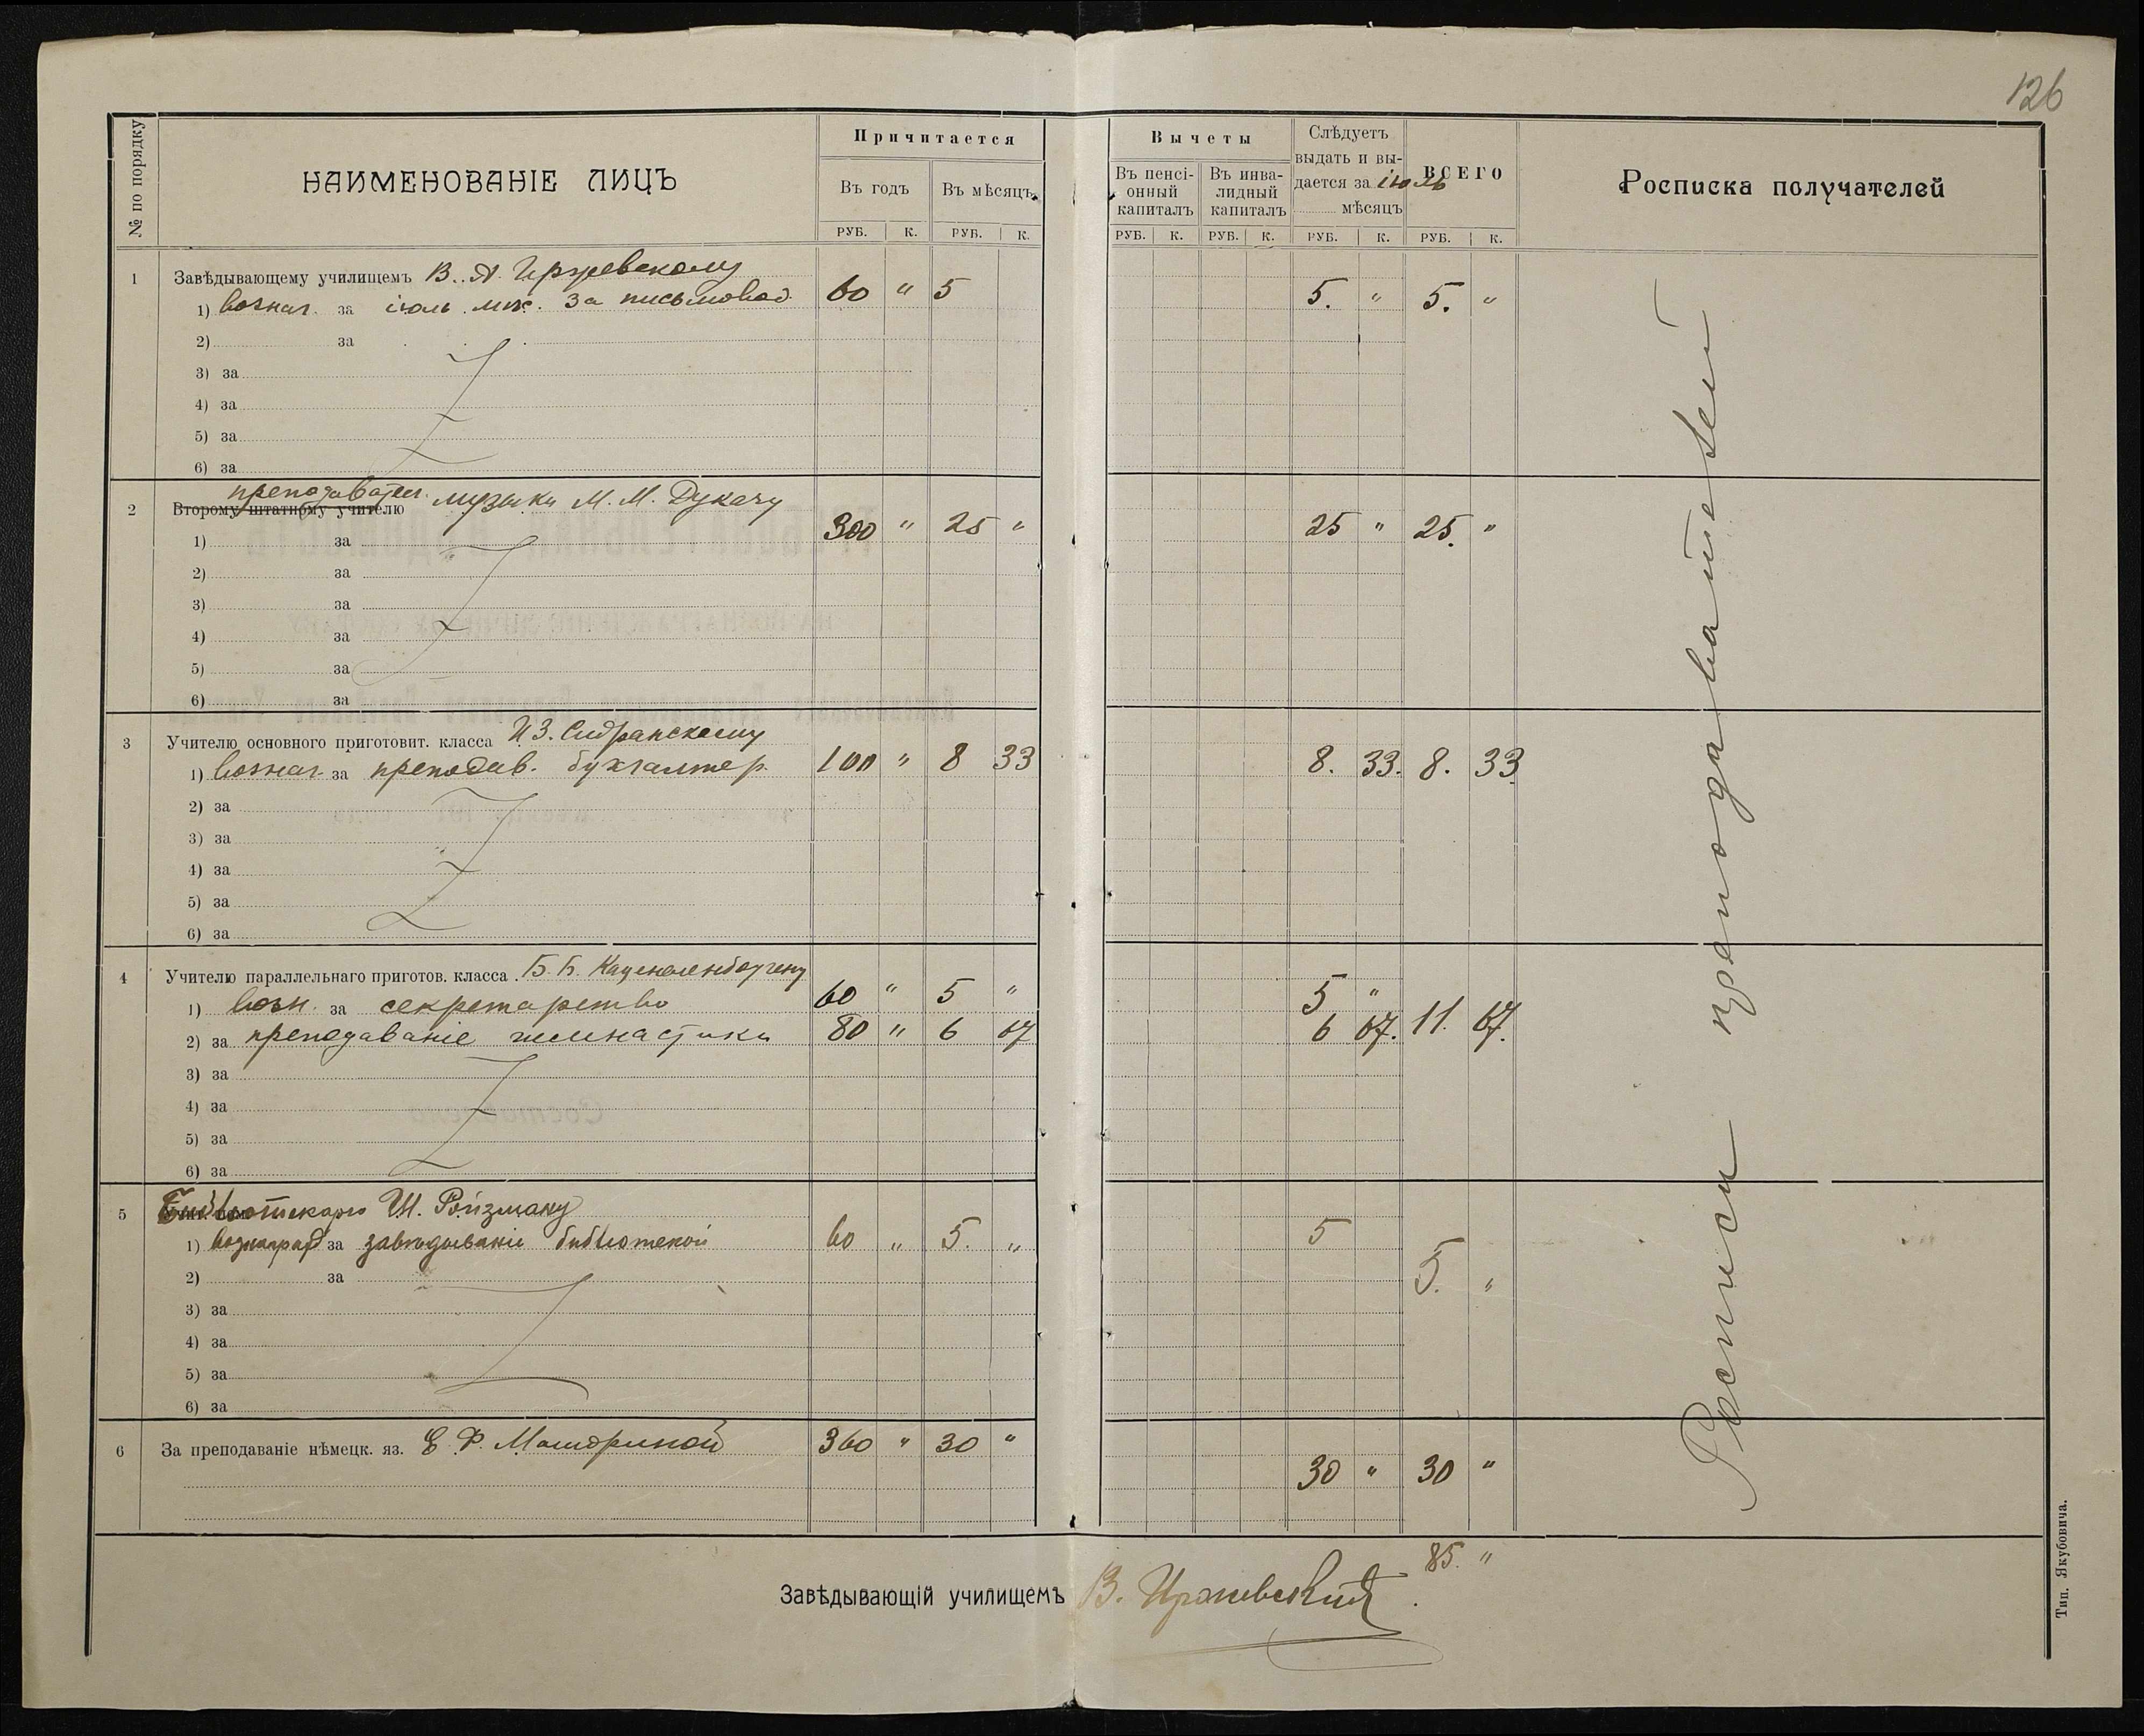 126
№ по порядку
НАИМЕНОВАНІЕ ЛИЦЪ
Причитается
Въ годъ
Въ мѣсяцъ
РУБ. К. РУБ. К.
Вычеты
Въ пенсі-
онный
капиталъ
Въ инва-
лидный
капиталъ
Слѣдуетъ
выдать и вы-
дается за іюль
мѣсяцъ
ВСЕГО
РУБ. К. РУБ. К. РУБ. К. РУБ. К.
Росписка получателей
1 Завѣдывающему училищемъ В. А. Иржевскому
1) вознаг. за іюль мѣс. за письмовод. 60 " 5 5. " 5. "
2) за
3) за
4) за
5) за
6) за
преподават. музыки М. М. Дукачу
2 Второму штатному учителю
300 " 25 " 25 " 25. "
1) за
2) за
3) за
4) за
5) за
6) за
3 Учителю основного приготовит. класса И З. Сидранскому
1) вознаг. за преподав. бухгалтер. 100 " 8 33 8. 33. 8. 33
2) за
3) за
4) за
5) за
6) за
4 Учителю параллельнаго приготов. класса Б. Б. Каценеленбогену
1) возн. за секретарство 60 " 5 " 5 "
2) за преподаваніе гимнастики 80 " 6 67 6 67. 11. 67.
3) за
4) за
5) за
6) за
5 Библіотекарю Ш. Ройзману
1) вознаград за завѣдываніе библіотекой 60 " 5. " 5
5. "
2) за
3) за
4) за
5) за
6) за
6 За преподаваніе нѣмецк. яз. Е. Ф. 360 " 30 "
30 " 30 "
Росписи преподавателей
85. "
Завѣдывающій училищемъ В. Иржевскій
Тип. Якубовича.